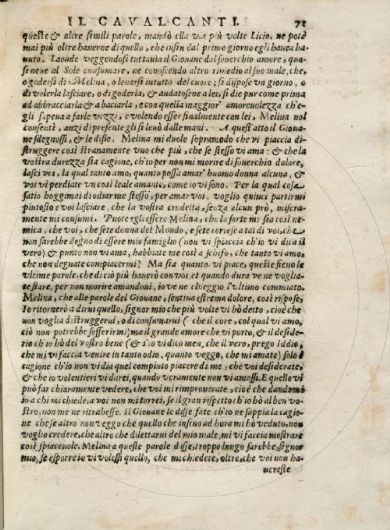 IL CAVALCANTI. 71
queste & altre simili parole, mandò ella via più volte Licio, ne potè
mai più oltre hauerne di quello, che insin dal primo giorno egli hauea ha-
uuto. Laonde veggendosi tuttauia il Giouane dal souerchio amore, qua-
si neue al Sole consumare, ne conoscendo altro rimedio al suo male, che,
o godersi di Melina, o leuarsi intutto dal cuore; si dispose vn giorno, o
di volerla lasciare, o di goderla, & andatosene a lei, si diè pur come prima
ad abbracciarla & a baciarla, e con quella maggior' amoreuolezza ch'e-
gli sapeua a farle vezzi, e volendo esser finalmente con lei, Melina nol
consentì, anzi di presente gli si leuò dalle mani. A quest' atto il Gioua-
ne sdegnossi, & le disse. Melina mi duole sopramodo che ti piaccia di
struggere così stranamente vuo che più, che se stesso vi ama: & che la
vostra durezza sia cagione, ch'io per non mi morire di souerchio dolore,
lasci voi, la qual tanto amo, quanto possa amar' huomo donna alcuna, &
voi vi perdiate vn così leale amante, come io vi sono. Per la qual cosa
satio hoggimai di odiar me stesso, per amar voi, voglio quinci partirmi
piutosto, e voi lasciare, che la vostra crudeltà, senza alcun prò, misera-
mente mi consumi. Puote egli essere Melina, che la sorte mi sia così ne-
mica, che voi, che sete donna del Mondo, e sete cortese a tal di voi, che
non sarebbe degno di essere mio famiglio (non vi spiaccia ch'io vi dica il
vero) & punto non vi ama, habbiate me così a schifo, che tanto vi amo,
che non degnate compiacermi? Ma sia quanto vi piace, queste sieno le
vltime parole, che di ciò più hauerò con voi, et quando dura ve ne voglia-
te stare, per non morire amandoui, io ve ne cheggio l'vltimo commiato.
Melina, che alle parole del Giouane, sentiua estremo dolore, così rispose,
Io ritornerò a dirui quello, signor mio che più volte vi hò detto, cioè che
non voglia distruggerui, o di consumarui (che il core, col qual vi amo,
ciò non potrebbe sofferirmi) ma il grande amore che vi porto, & il deside-
rio ch'io hò del vostro bene (& s'io vi dico mea, che il vero, prego Iddio,
che mi vi faccia venire in tanto odio, quanto veggo, che mi amate) solo è
cagione ch'io non vi dia quel compiuto piacere di me, che voi desiderate,
& che io volentieri vi darei, quando veramente non vi amassi. E quello vi
può far chiaramente vedere, che voi mi rimprouerate, cioè che dandomi
io a chi mi chiede, a voi non mi torrei, se il gran rispetto ch'io hò al ben vo-
stro, non me ne ritrahesse. Il Giouane le disse fate ch'io ne sappia la cagio-
ne che se altro non veggo che quello che insino ad hora mi hò veduto, non
voglio credere, che altro che dilettarui del mio male, mi vi faccia mostrare
così spiaceuole. Melina a queste parole disse, troppo lungo sarebbe, signor
mio, se esporre io vi volessi quello, che mi chiedete, oltre, che voi non ha-
ureste